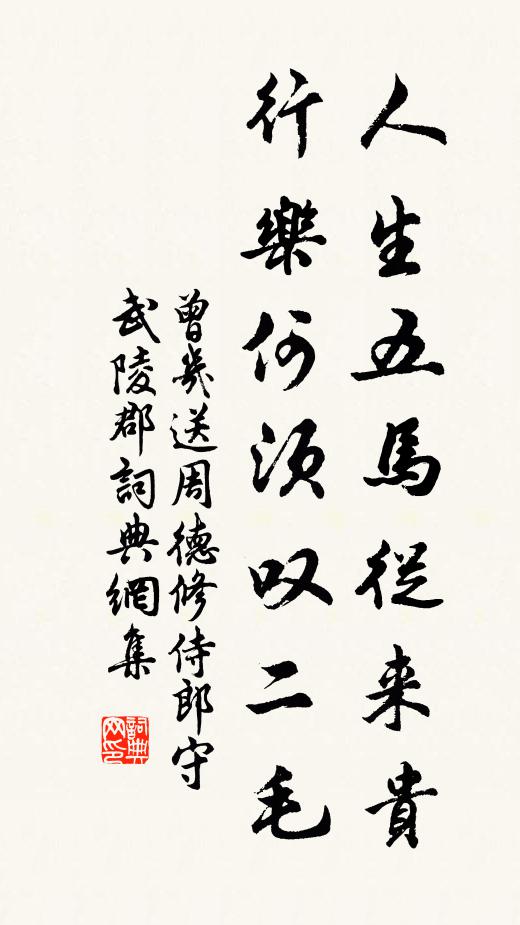 人生五馬從来貴
行樂何須叹二毛
曾幾送周德修侍郎守
武陵郡詞典網集
詞典
网印